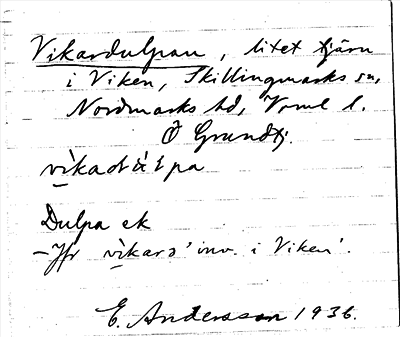 Vikardulpan, litet tjärn
i Viken, Skillingmarks sn,
Nordmarks hd, Vrml l.
Ö Grundtj.
Dulpa ek
– Jfr vìkarə 'inv. i Viken'.
E. Andersson 1936.